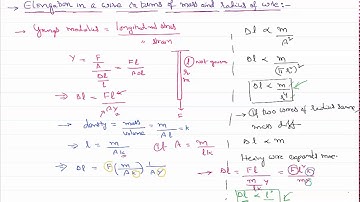 → Elongation in a wire in terms of mass and radius of wire:-
→ Youngs modulus = longitudinal stress
strain
Y = F/A / Δl/l = Fl/AΔl
l not given
r
m
F
⇒ Δl = Fl/AY
→ density = mass/volume = m/Al = k
→ l = m/Ak
A = m/lk
⇒ Δl = F (m/Ak) 1/AY
Δl ∝ m/A²
Δl ∝ m/(πr²)²
Δl ∝ m/r⁴
→ If two wires of radius same,
mass diff
Δl ∝ m
Heavy wire expands more.
→ Δl = Fl/(m/lk)Y = Fl²k/mY
Δl ∝ l²